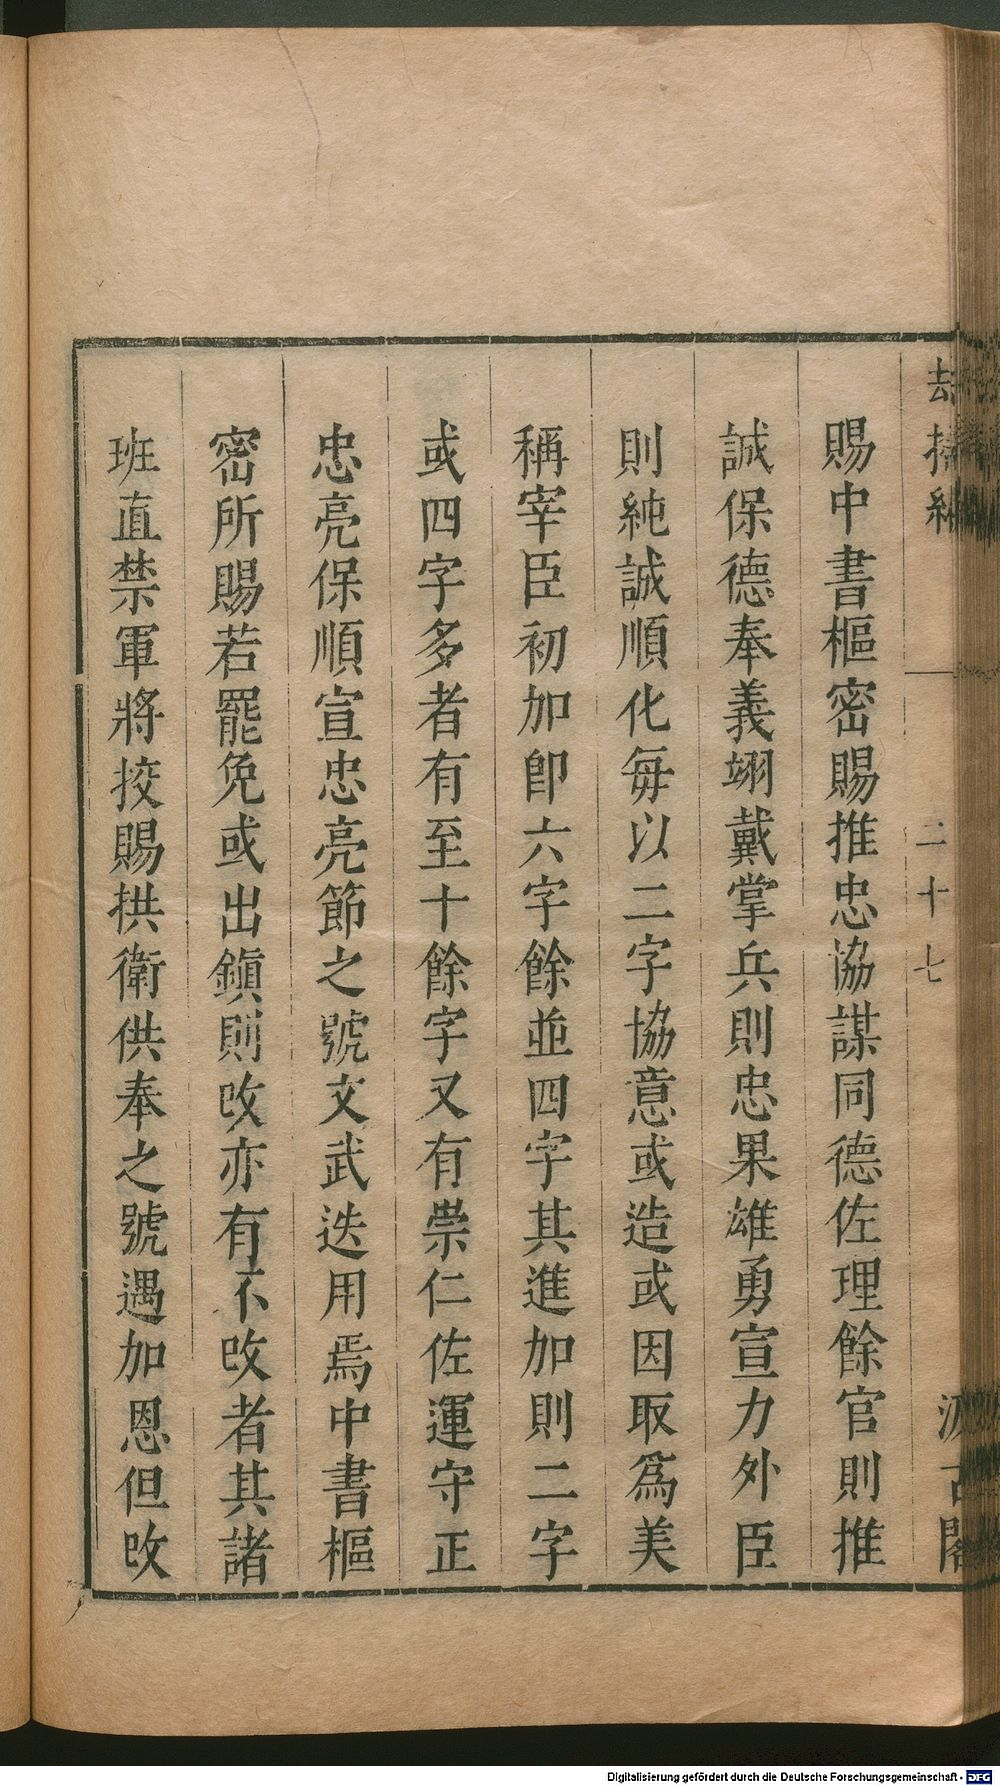 賜中書樞密賜推忠協謀同德佐理餘官則推
誠保德奉義翊戴掌兵則忠果雄勇宣力外臣
則純誠順化每以二字協意或造或因取爲美
稱宰臣初加卽六字餘並四字其進加則二字
或四字多者有至十餘字又有崇仁佐運守正
忠亮保順宣忠亮節之號文武迭用焉中書樞
密所賜若罷免或出鎭則改亦有不改者其諸
班直禁軍將挍賜拱衛供奉之號遇加恩但改
二十七
Digitalisierung gefördert durch die Deutsche Forschungsgemeinschaft - DFG